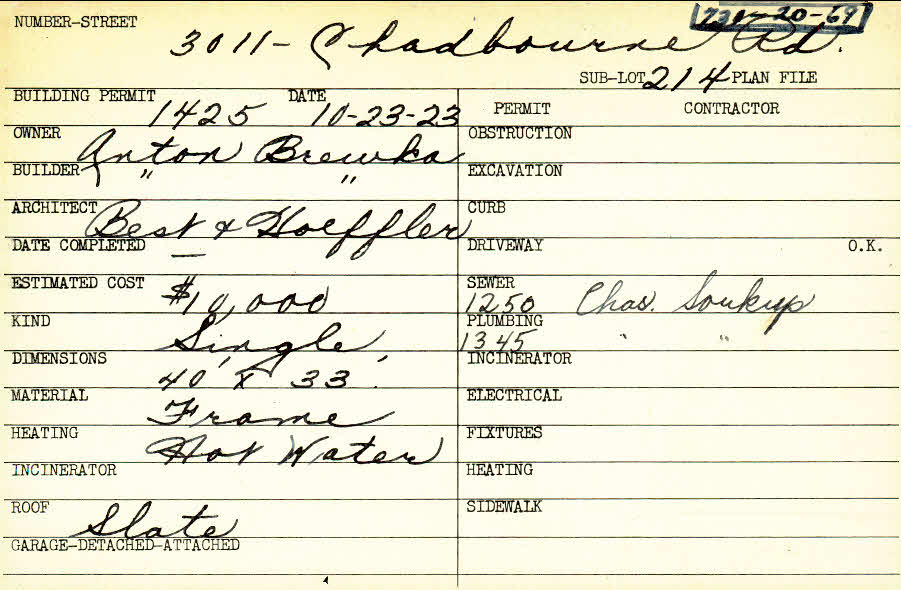 NUMBER-STREET
3011- Chadbourne Rd.
SUB-LOT 214 PLAN FILE
BUILDING PERMIT 1425 DATE 10-23-23
PERMIT CONTRACTOR
OWNER Anton Brewka
OBSTRUCTION
BUILDER " "
EXCAVATION
ARCHITECT Best & Hoeffler
CURB
DATE COMPLETED —
DRIVEWAY O.K.
ESTIMATED COST $10,000
SEWER
1250 Chas. Soukup
KIND Single
PLUMBING
1345 " "
DIMENSIONS 40' x 33'
INCINERATOR
MATERIAL Frame
ELECTRICAL
HEATING Hot Water
FIXTURES
INCINERATOR
HEATING
ROOF Slate
SIDEWALK
GARAGE-DETACHED-ATTACHED